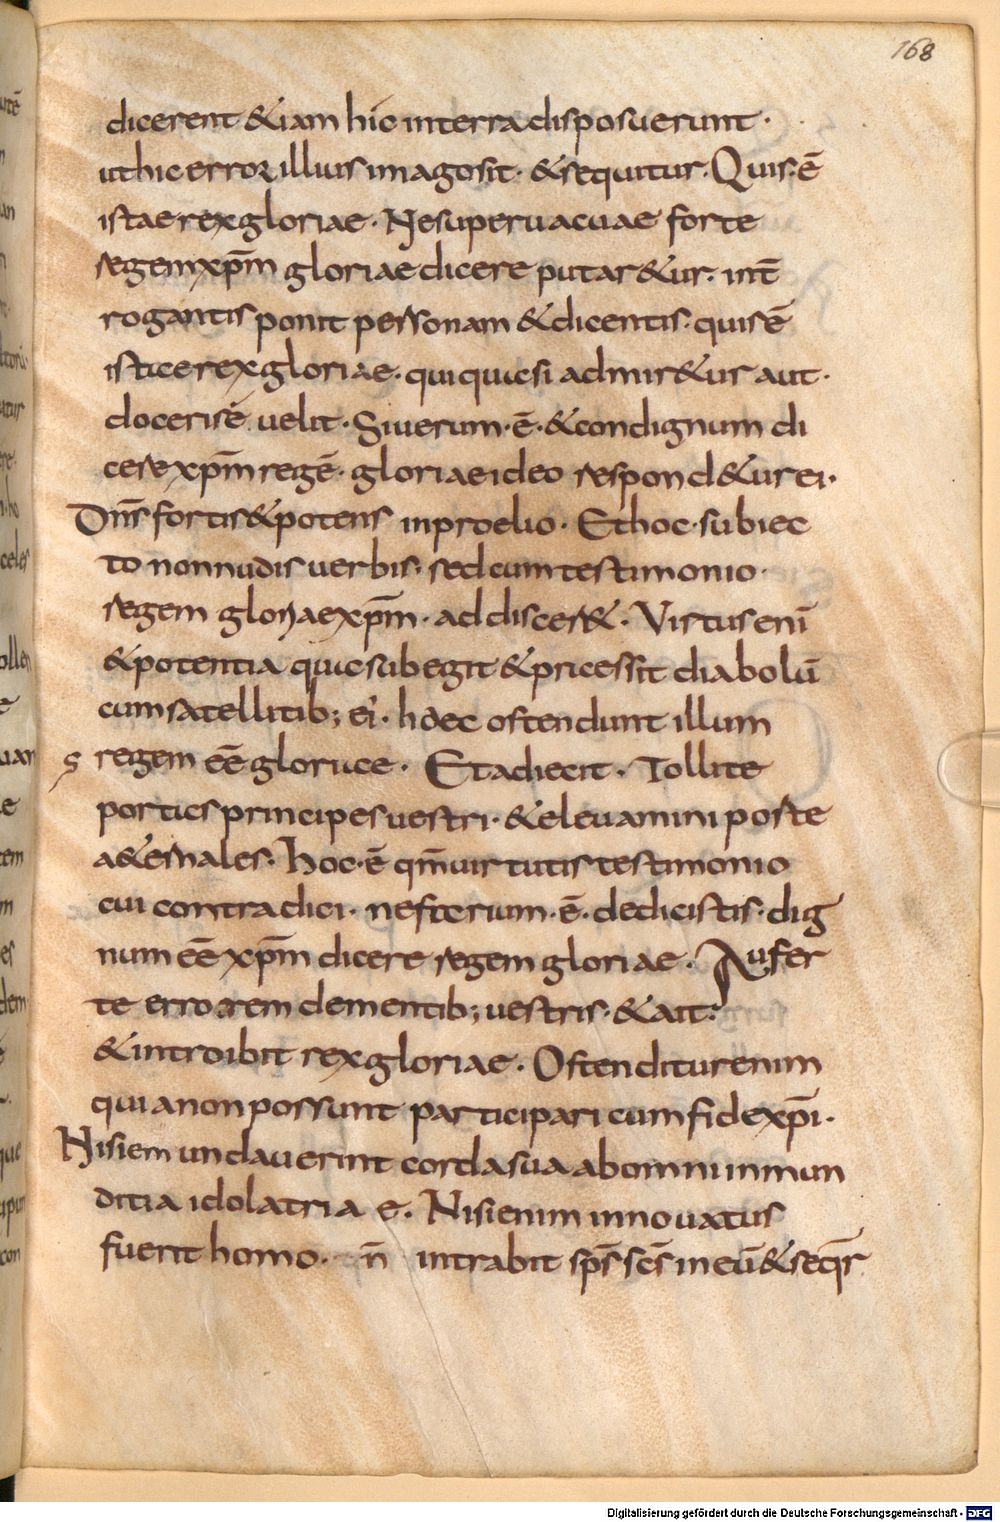 168
dicerent &iam hic interra disposuerunt ·
ut hic error illius imago sit · & sequitur · Quis · ē
istae rex gloriae · Ne supervacuae forte
regem xp̄m gloriae dicere putar&ur · int̄
rogantis ponit personam & dicentis · quis ē
iste rex gloriae · qui quasi admir&ur aut ·
doceri se velit · Si verum · ē · & condignum di
cere xp̄m regē · gloriae ideo respond&ur ei ·
Dn̄s fortis & potens in proelio · Et hoc · subiec
to non nudis verbis · sed cum testimonio ·
regem gloriae xp̄m · ad discer& · Virtus enī
& potentia quae subegit & pressit diabolū
cum satellitib; ei · haec ostendunt illum
regem eē gloriae · Et adiecit · Tollite
portas principes vestri · & elevamini porte
a&ernales · Hoc · ē qm̄ virtutis testimonio
cui contradici · nefarium · ē · dedicistis · dig
num eē xp̄m dicere regem gloriae · Aufer
te errorem de mentib; vestris · & ait :
& introibit rex gloriae · Ostenditur enim
quia non possunt participari cum fide xp̄i ·
Nisi emundaverint corda sua ab omni inmun
ditia idolatriae · Nisi enim innovatus
fuerit homo · n̄ intrabit sp̄s sc̄s in eū & seqr̄
Digitalisierung gefördert durch die Deutsche Forschungsgemeinschaft - DFG